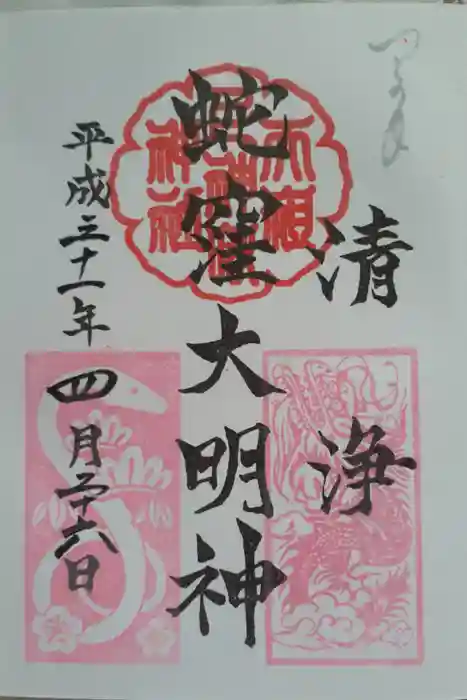 清浄
蛇窪大明神
平成三十一年四月二十六日
天祖
神社